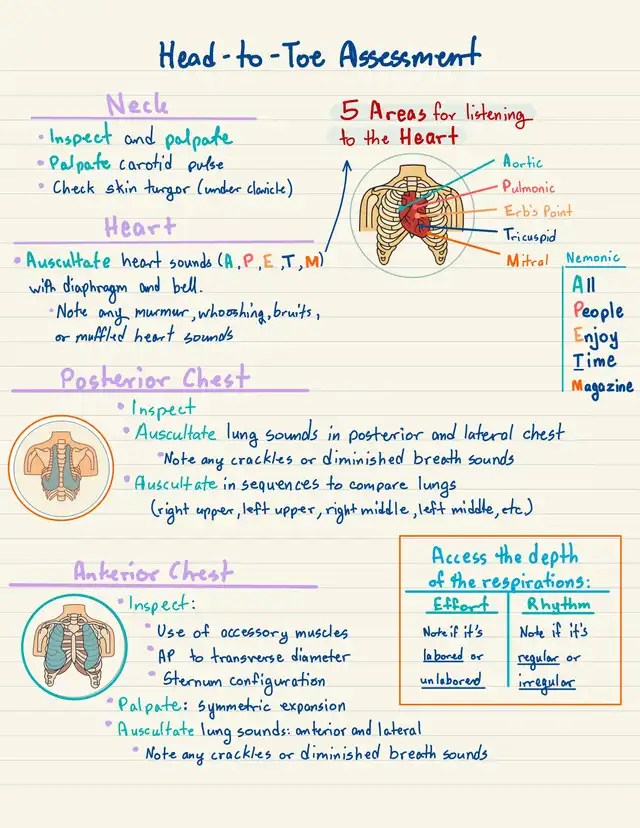 Head-to-Toe Assessment
Neck
• Inspect and palpate
• Palpate carotid pulse
• Check skin turgor (under clavicle)
Heart
• Auscultate heart sounds (A, P, E, T, M)
with diaphragm and bell.
• Note any murmur, whooshing, bruits,
or muffled heart sounds
5 Areas for listening
to the Heart
Aortic
Pulmonic
Erb's Point
Tricuspid
Mitral
Nemonic
All
People
Enjoy
Time
Magazine
Posterior Chest
• Inspect
• Auscultate lung sounds in posterior and lateral chest
• Note any crackles or diminished breath sounds
• Auscultate in sequences to compare lungs
(right upper, left upper, right middle, left middle, etc.)
Anterior Chest
• Inspect:
• Use of accessory muscles
• AP to transverse diameter
• Sternum configuration
• Palpate: symmetric expansion
• Auscultate lung sounds: anterior and lateral
• Note any crackles or diminished breath sounds
Access the depth
of the respirations:
Effort
Note if it's
labored or
unlabored
Rhythm
Note if it's
regular or
irregular